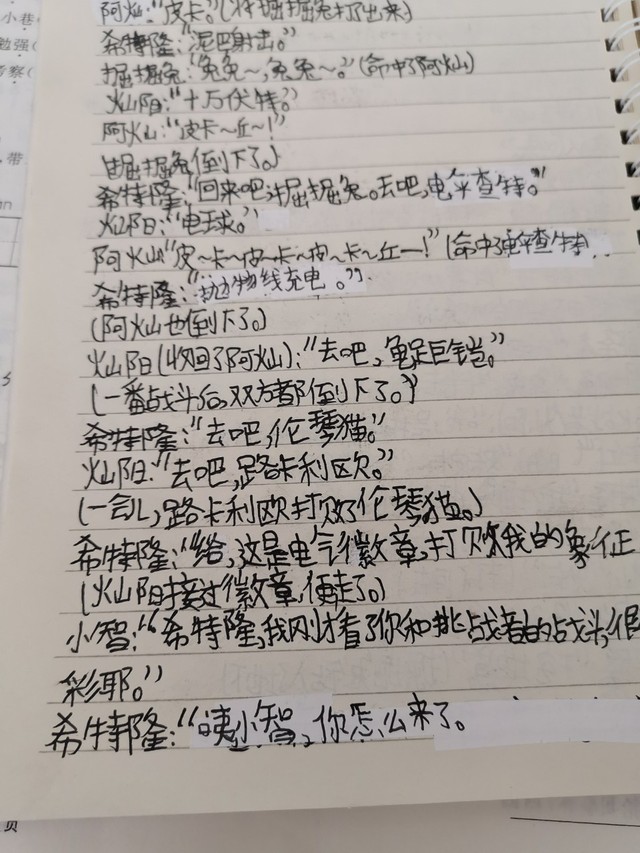 小巷
勉强
考察
带
阿灿:“皮卡。”(将掘掘兔打了出来)
希特隆:“泥巴射击。”
掘掘兔:“兔兔~,兔兔~。”(命中了阿灿)
灿阳:“十万伏特。”
阿灿:“皮卡~丘~!”
(掘掘兔倒下了。)
希特隆:“回来吧,掘掘兔。去吧,电伞查特。”
灿阳:“电球。”
阿灿:“皮~卡~皮~卡~皮~卡~丘—!”(命中了电伞查特)
希特隆:“抛物线充电。”
(阿灿也倒下了。)
灿阳(收回了阿灿):“去吧,龟足巨铠。”
(一番战斗后,双方都倒下了。)
希特隆:“去吧,伦琴猫。”
灿阳:“去吧,路卡利欧。”
(一会儿,路卡利欧打败了伦琴猫。)
希特隆:“给,这是电气徽章,打败我的象征
(灿阳接过徽章,便走了。)
小智:“希特隆,我刚才看了你和挑战者的战斗,很
彩耶。”
希特隆:“咦小智,你怎么来了。
页